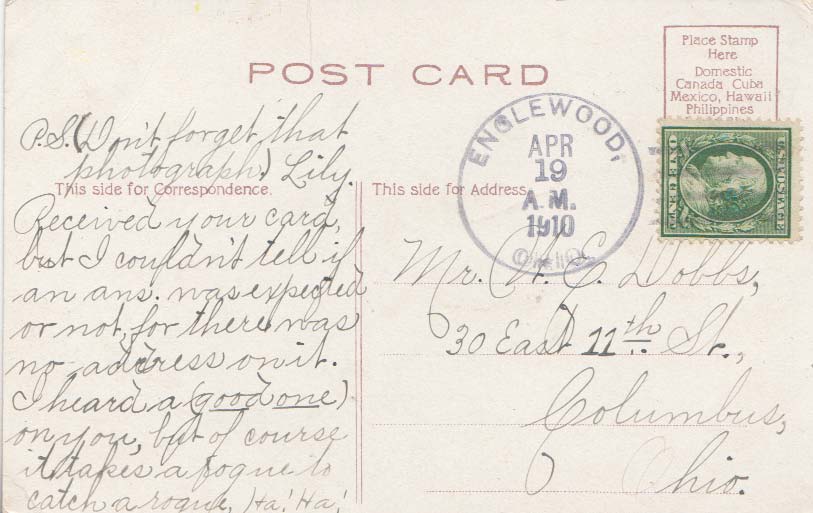 POST CARD
Place Stamp
Here
Domestic
Canada Cuba
Mexico, Hawaii
Philippines
ENGLEWOOD,
APR
19
A.M.
1910
OHIO.
P.S. (Don't forget that
photograph.) Lily.
This side for Correspondence.
Received your card,
but I couldn't tell if
an ans. was expected
or not, for there was
no address on it.
I heard a (good one)
on you, but of course
it takes a rogue to
catch a rogue, Ha! Ha!
This side for Address
Mr. C. Dobbs,
30 East 11th St.,
Columbus,
Ohio.